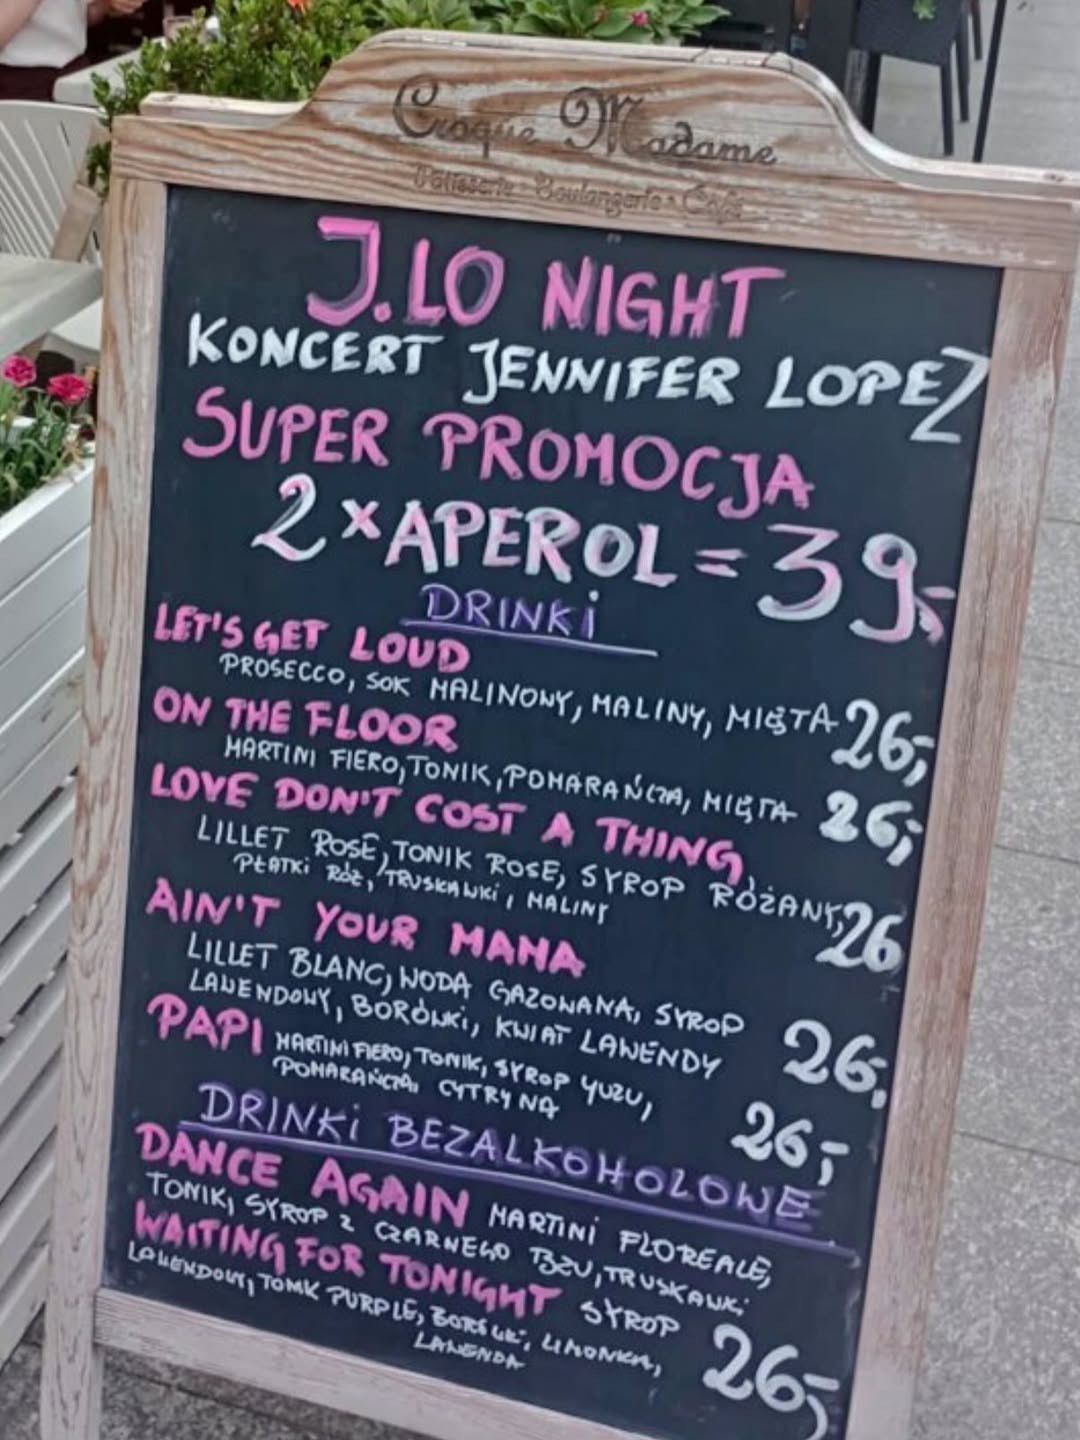 Croque Madame
Patisserie • Boulangerie • Café
J.LO NIGHT
KONCERT JENNIFER LOPEZ
SUPER PROMOCJA
2 x APEROL = 39,-
DRINKI
LET'S GET LOUD
PROSECCO, SOK MALINOWY, MALINY, MIĘTA 26,-
ON THE FLOOR
MARTINI FIERO, TONIK, POMARAŃCZA, MIĘTA 26,-
LOVE DON'T COST A THING
LILLET ROSE, TONIK ROSE, SYROP RÓŻANY,
PŁATKI RÓŻ, TRUSKAWKI, MALINY 26
AIN'T YOUR MAMA
LILLET BLANC, WODA GAZOWANA, SYROP
LAWENDOWY, BORÓWKI, KWIAT LAWENDY 26,-
PAPI MARTINI FIERO, TONIK, SYROP YUZU,
POMARAŃCZA, CYTRYNA 26,-
DRINKI BEZALKOHOLOWE
DANCE AGAIN MARTINI FLOREALE,
TONIK, SYROP Z CZARNEGO BZU, TRUSKAWKI
WAITING FOR TONIGHT SYROP
LAWENDOWY, TONIK PURPLE, BORÓWKI, LIMONKA,
LAWENDA 26,-